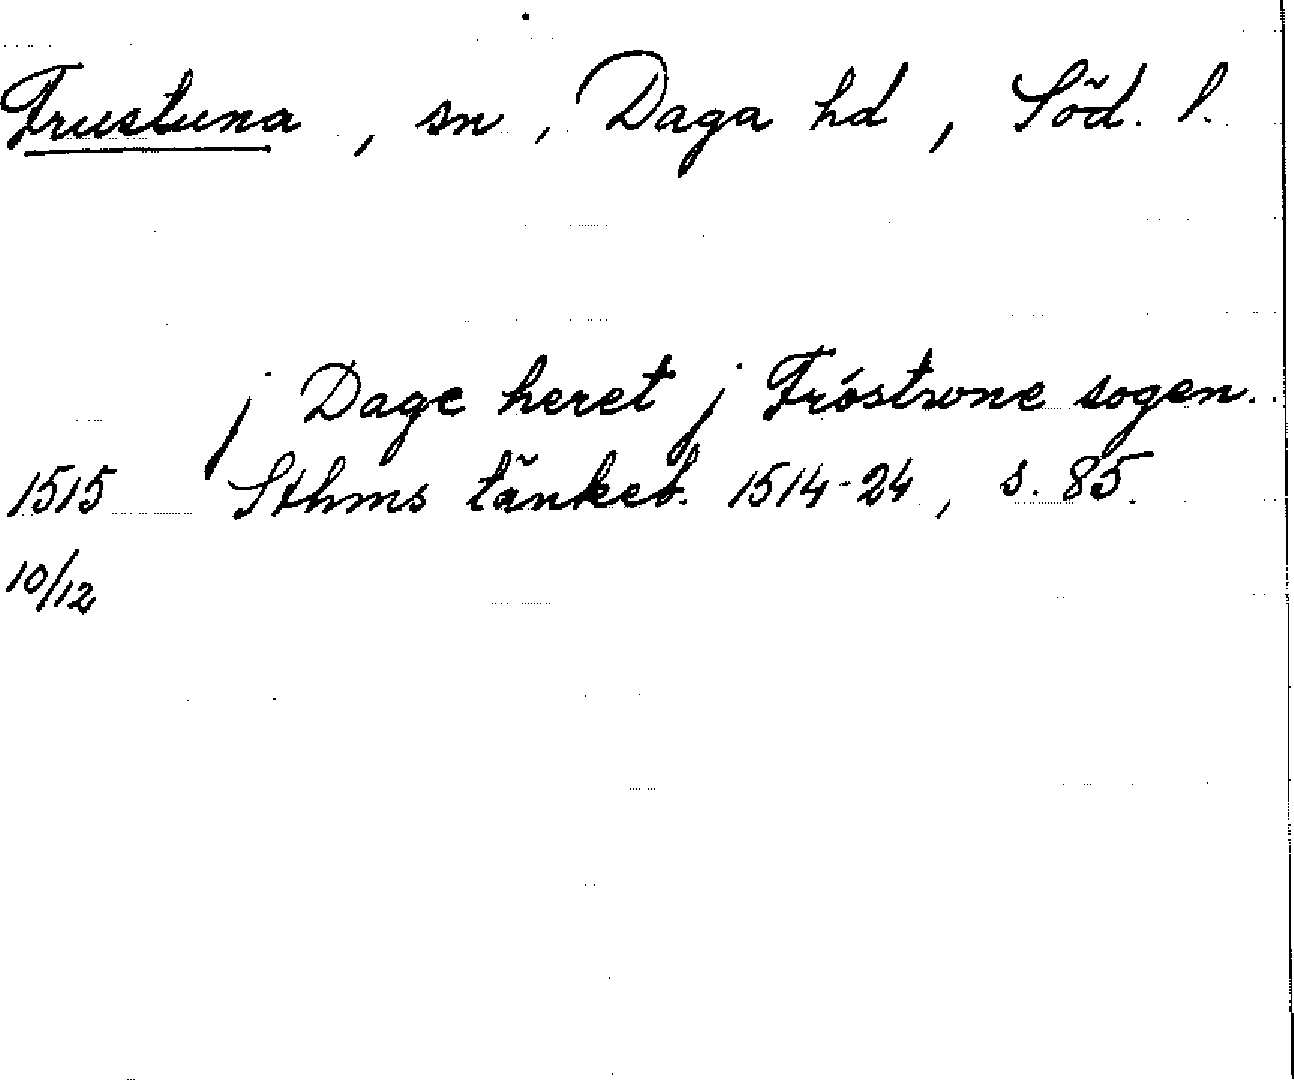 Frustuna, sn, Daga hd, Söd. l.
j Dage heret j Fróstwne sogen.
1515 Sthms tänkeb. 1514-24, s. 85.
10/12